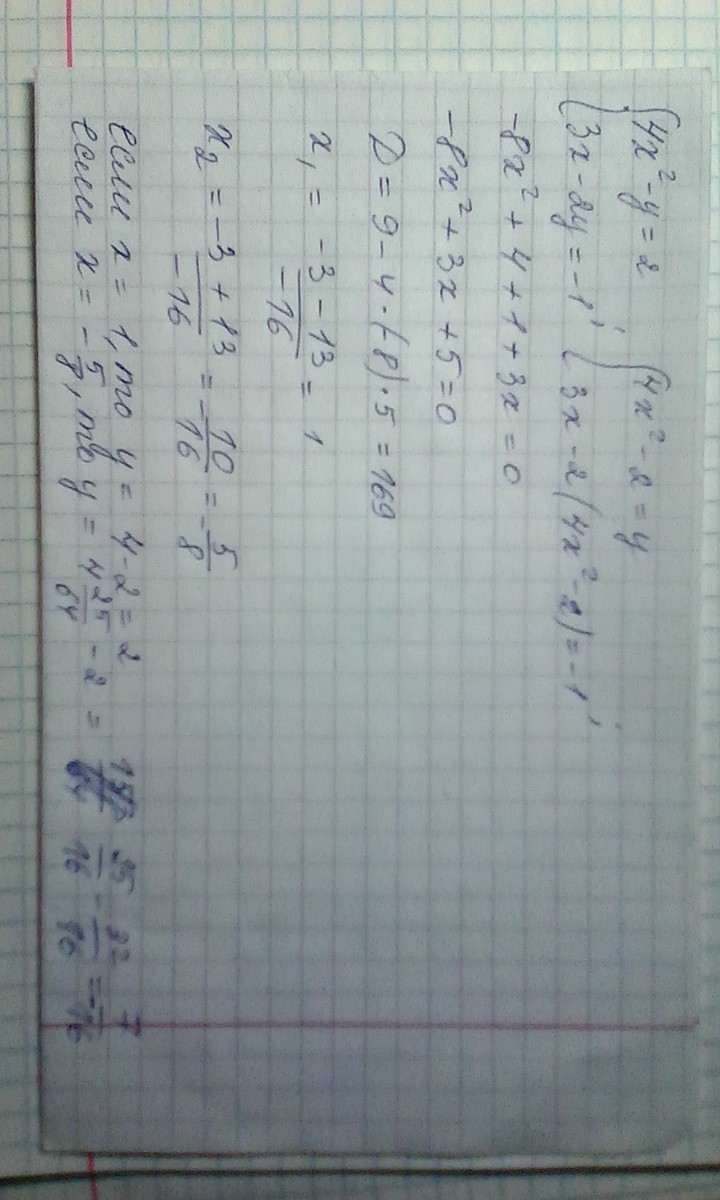 {4x² - y = 2 {4x² - 2 = y
{3x - 2y = -1 ; {3x - 2(4x² - 2) = -1 ;
-8x² + 4 + 1 + 3x = 0
-8x² + 3x + 5 = 0
D = 9 - 4 · (-8) · 5 = 169
x₁ = (-3 - 13)/(-16) = 1
x₂ = (-3 + 13)/(-16) = -10/16 = -5/8
если x = 1, то y = 4 - 2 = 2
если x = -5/8, то y = 4 25/64 - 2 = 25/16 - 32/16 = -7/16